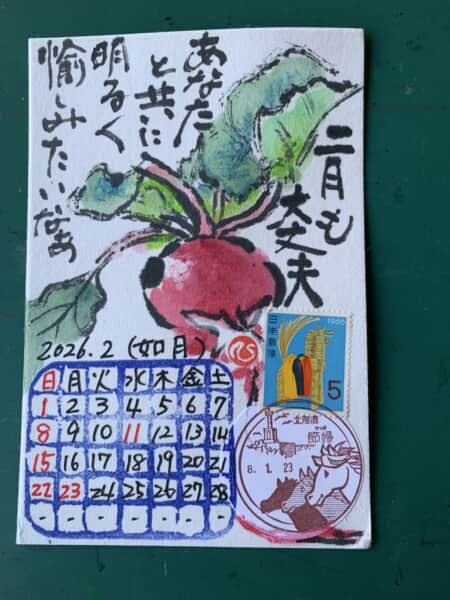 二月も
大丈夫
あなた
と共に
明るく
愉しみたいなぁ
2026.2 (如月)
日 月 火 水 木 金 土
1 2 3 4 5 6 7
8 9 10 11 12 13 14
15 16 17 18 19 20 21
22 23 24 25 26 27 28
- - - - - - -
1966
日本郵便
5
北海道
節婦
8.1.23